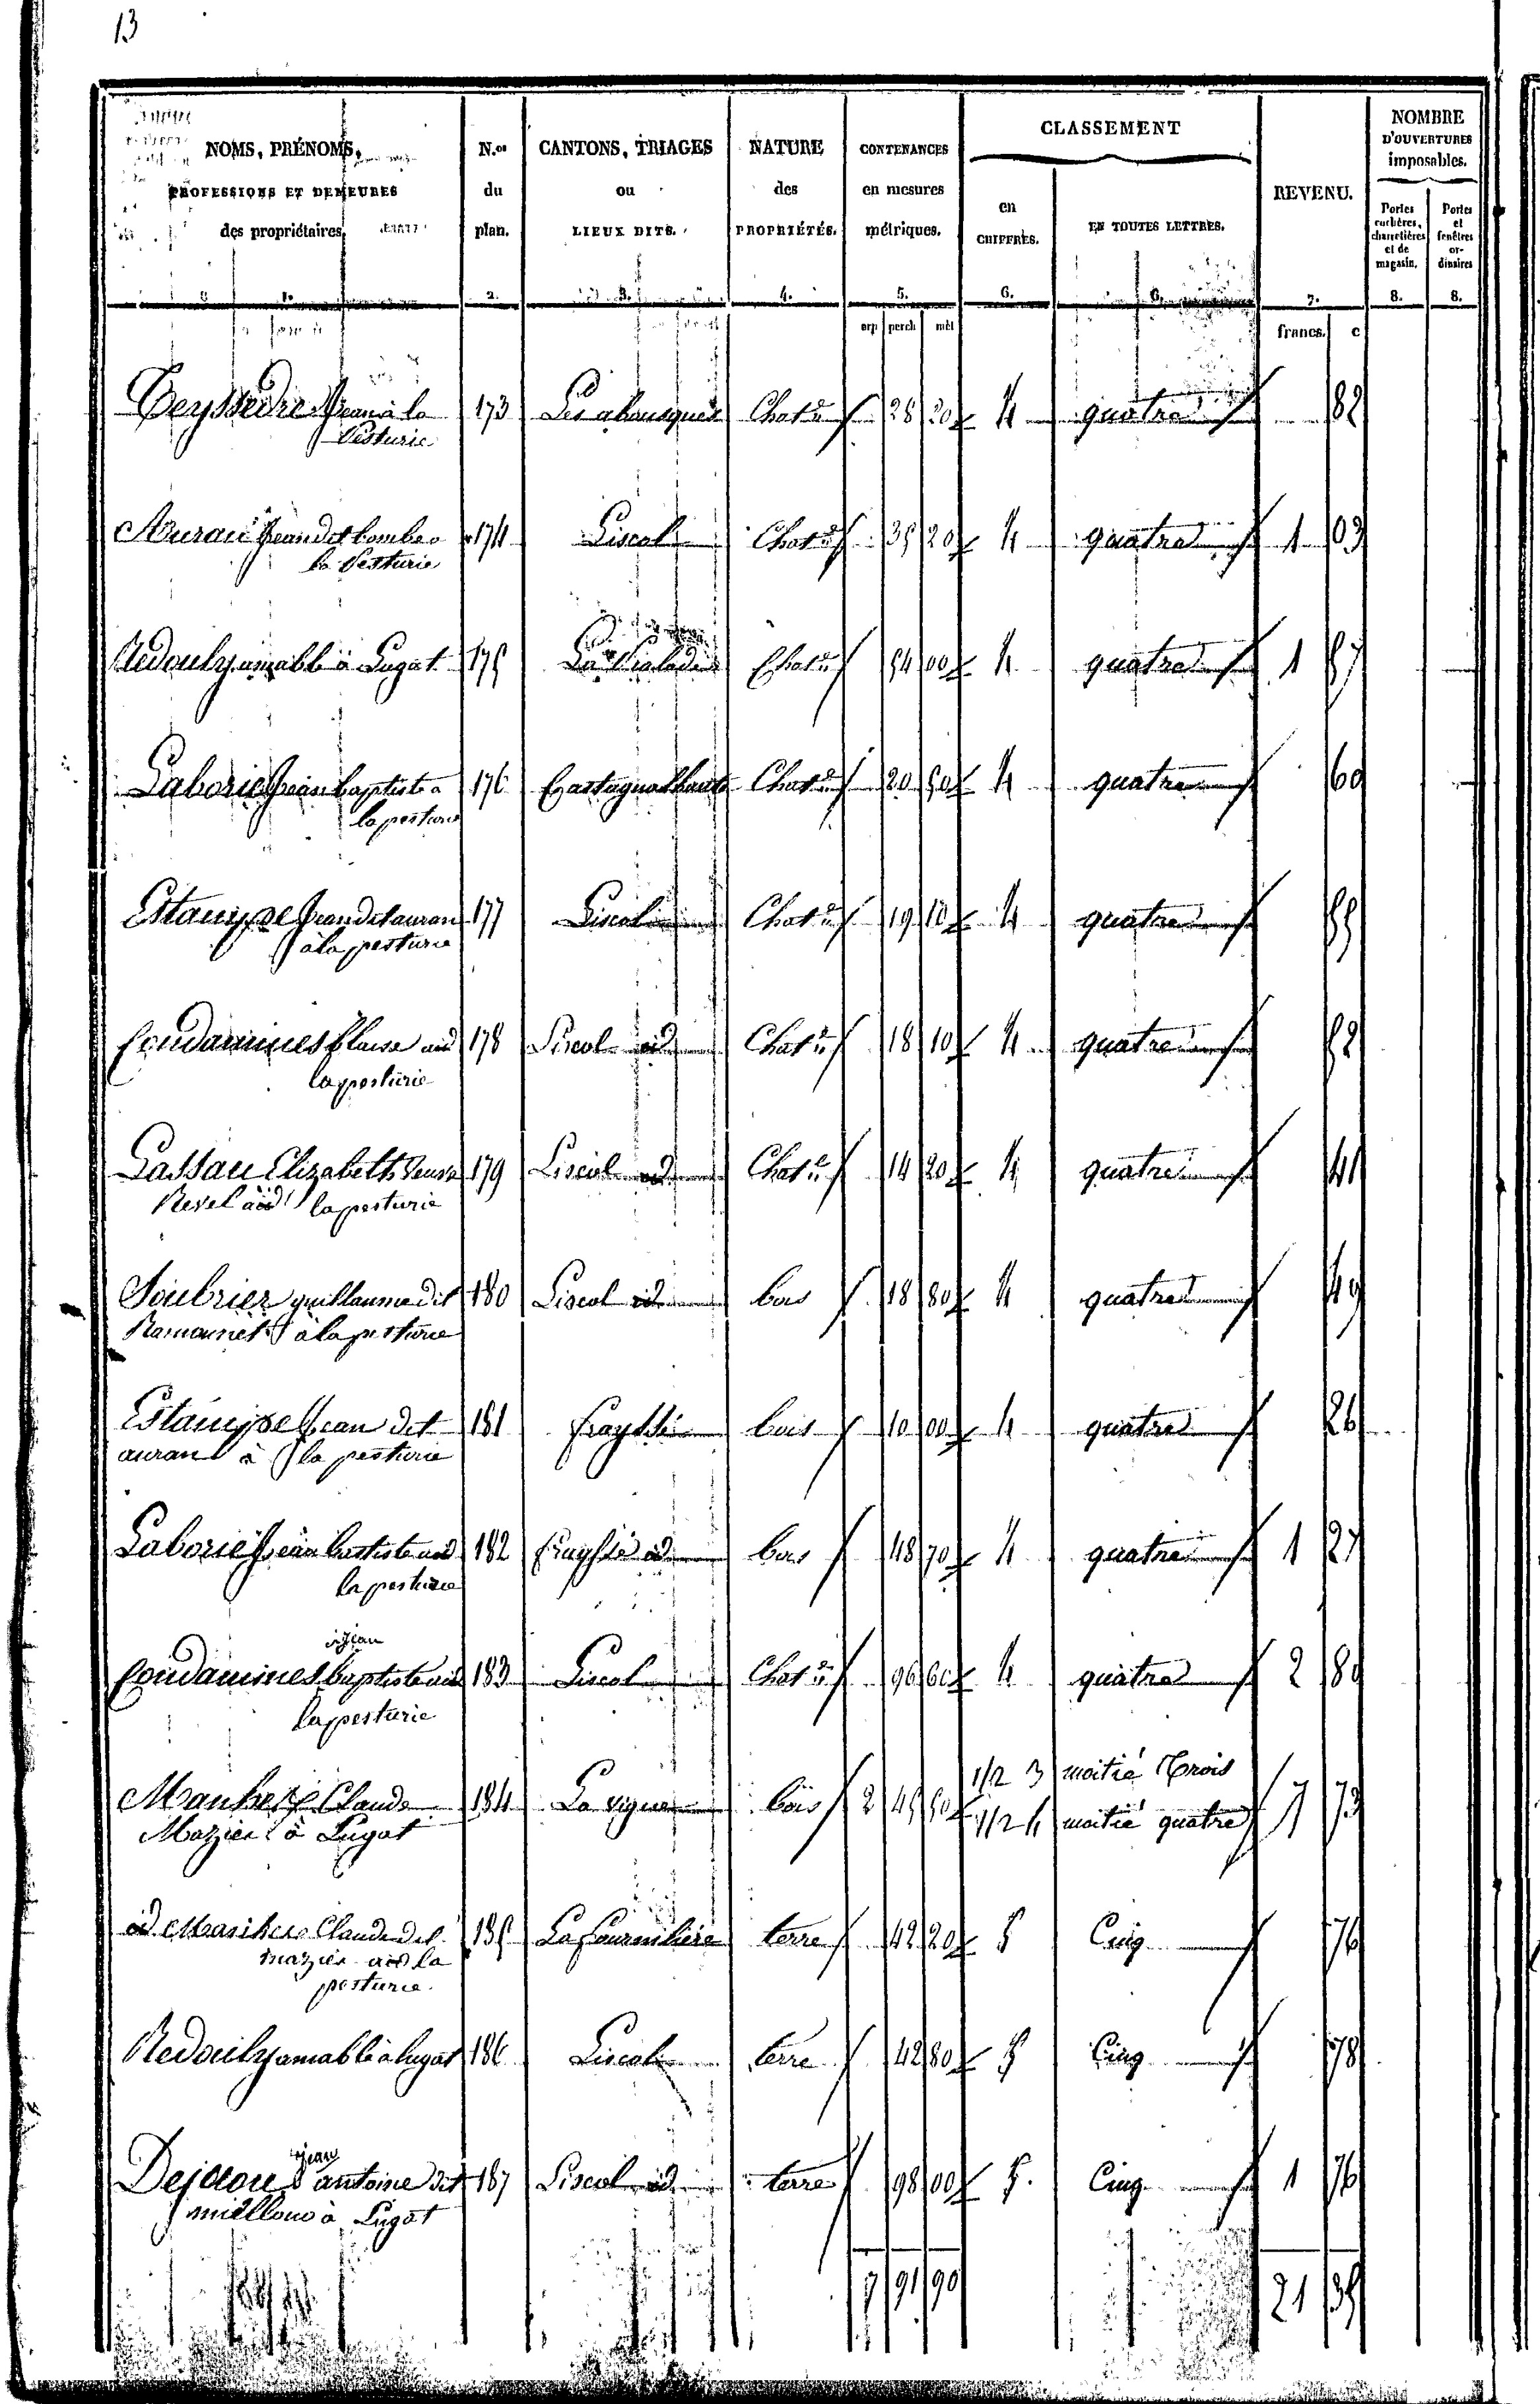 13
NOMS, PRÉNOMS, PROFESSIONS ET DEMEURES des propriétaires. N.os du plan. CANTONS, TRIAGES ou LIEUX DITS. NATURE des PROPRIÉTÉS. CONTENANCES en mesures métriques. CLASSEMENT en CHIFFRES. EN TOUTES LETTRES. REVENU. NOMBRE D'OUVERTURES imposables. Portes cochères, charretières et de magasin. Portes et fenêtres ordinaires
1. 2. 3. 4. 5. 6. 6. 7. 8. 8.
arp perch mèt francs. c
Teyssedre Jean à la 173 Chat.r 28 20 4 quatre 82
Pesturie
Jean dit 174 Liscol Chat.r 35 20 4 quatre 1 03
la Pesturie
Redouly amable à Lugat 175 La Chat.r 54 00 4 quatre 1 57
Laborie Jean baptiste a 176 Chat.r 20 50 4 quatre 60
la pesturie
Jean dit auran 177 Liscol Chat.r 19 10 4 quatre 55
à la pesturie
Condamines blaise aud 178 Liscol id Chat.r 18 10 4 quatre 52
la pesturie
Lassau Elizabeth Veuve 179 Liscol id Chat.r 14 20 4 quatre 41
Revel aud la pesturie
Soubrier guillaume dit 180 Liscol id bois 18 80 4 quatre 49
Ramounet à la pesturie
Jean dit 181 fraysse bois 10 00 4 quatre 26
auran à la pesturie
Laborie Jean Baptiste aud 182 fraysse id bois 48 70 4 quatre 1 27
la pesturie
jean
Condamines baptiste aud 183 Liscol Chat.r 96 60 4 quatre 2 80
la pesturie
1/2 3 moitié Trois
Claude 184 La vigne bois 2 45 50 7 73
Mazier à Lugat 1/2 4 moitié quatre
id Claude dit 185 terre 42 20 5 Cinq 76
mazier aud la
pesturie.
Redouly amable à lugat 186 Liscol terre 42 80 5 Cinq 78
jean
Dejaou antoine dit 187 Liscol id terre 98 00 5. Cinq 1 76
à Lugat
7 91 90 21 35